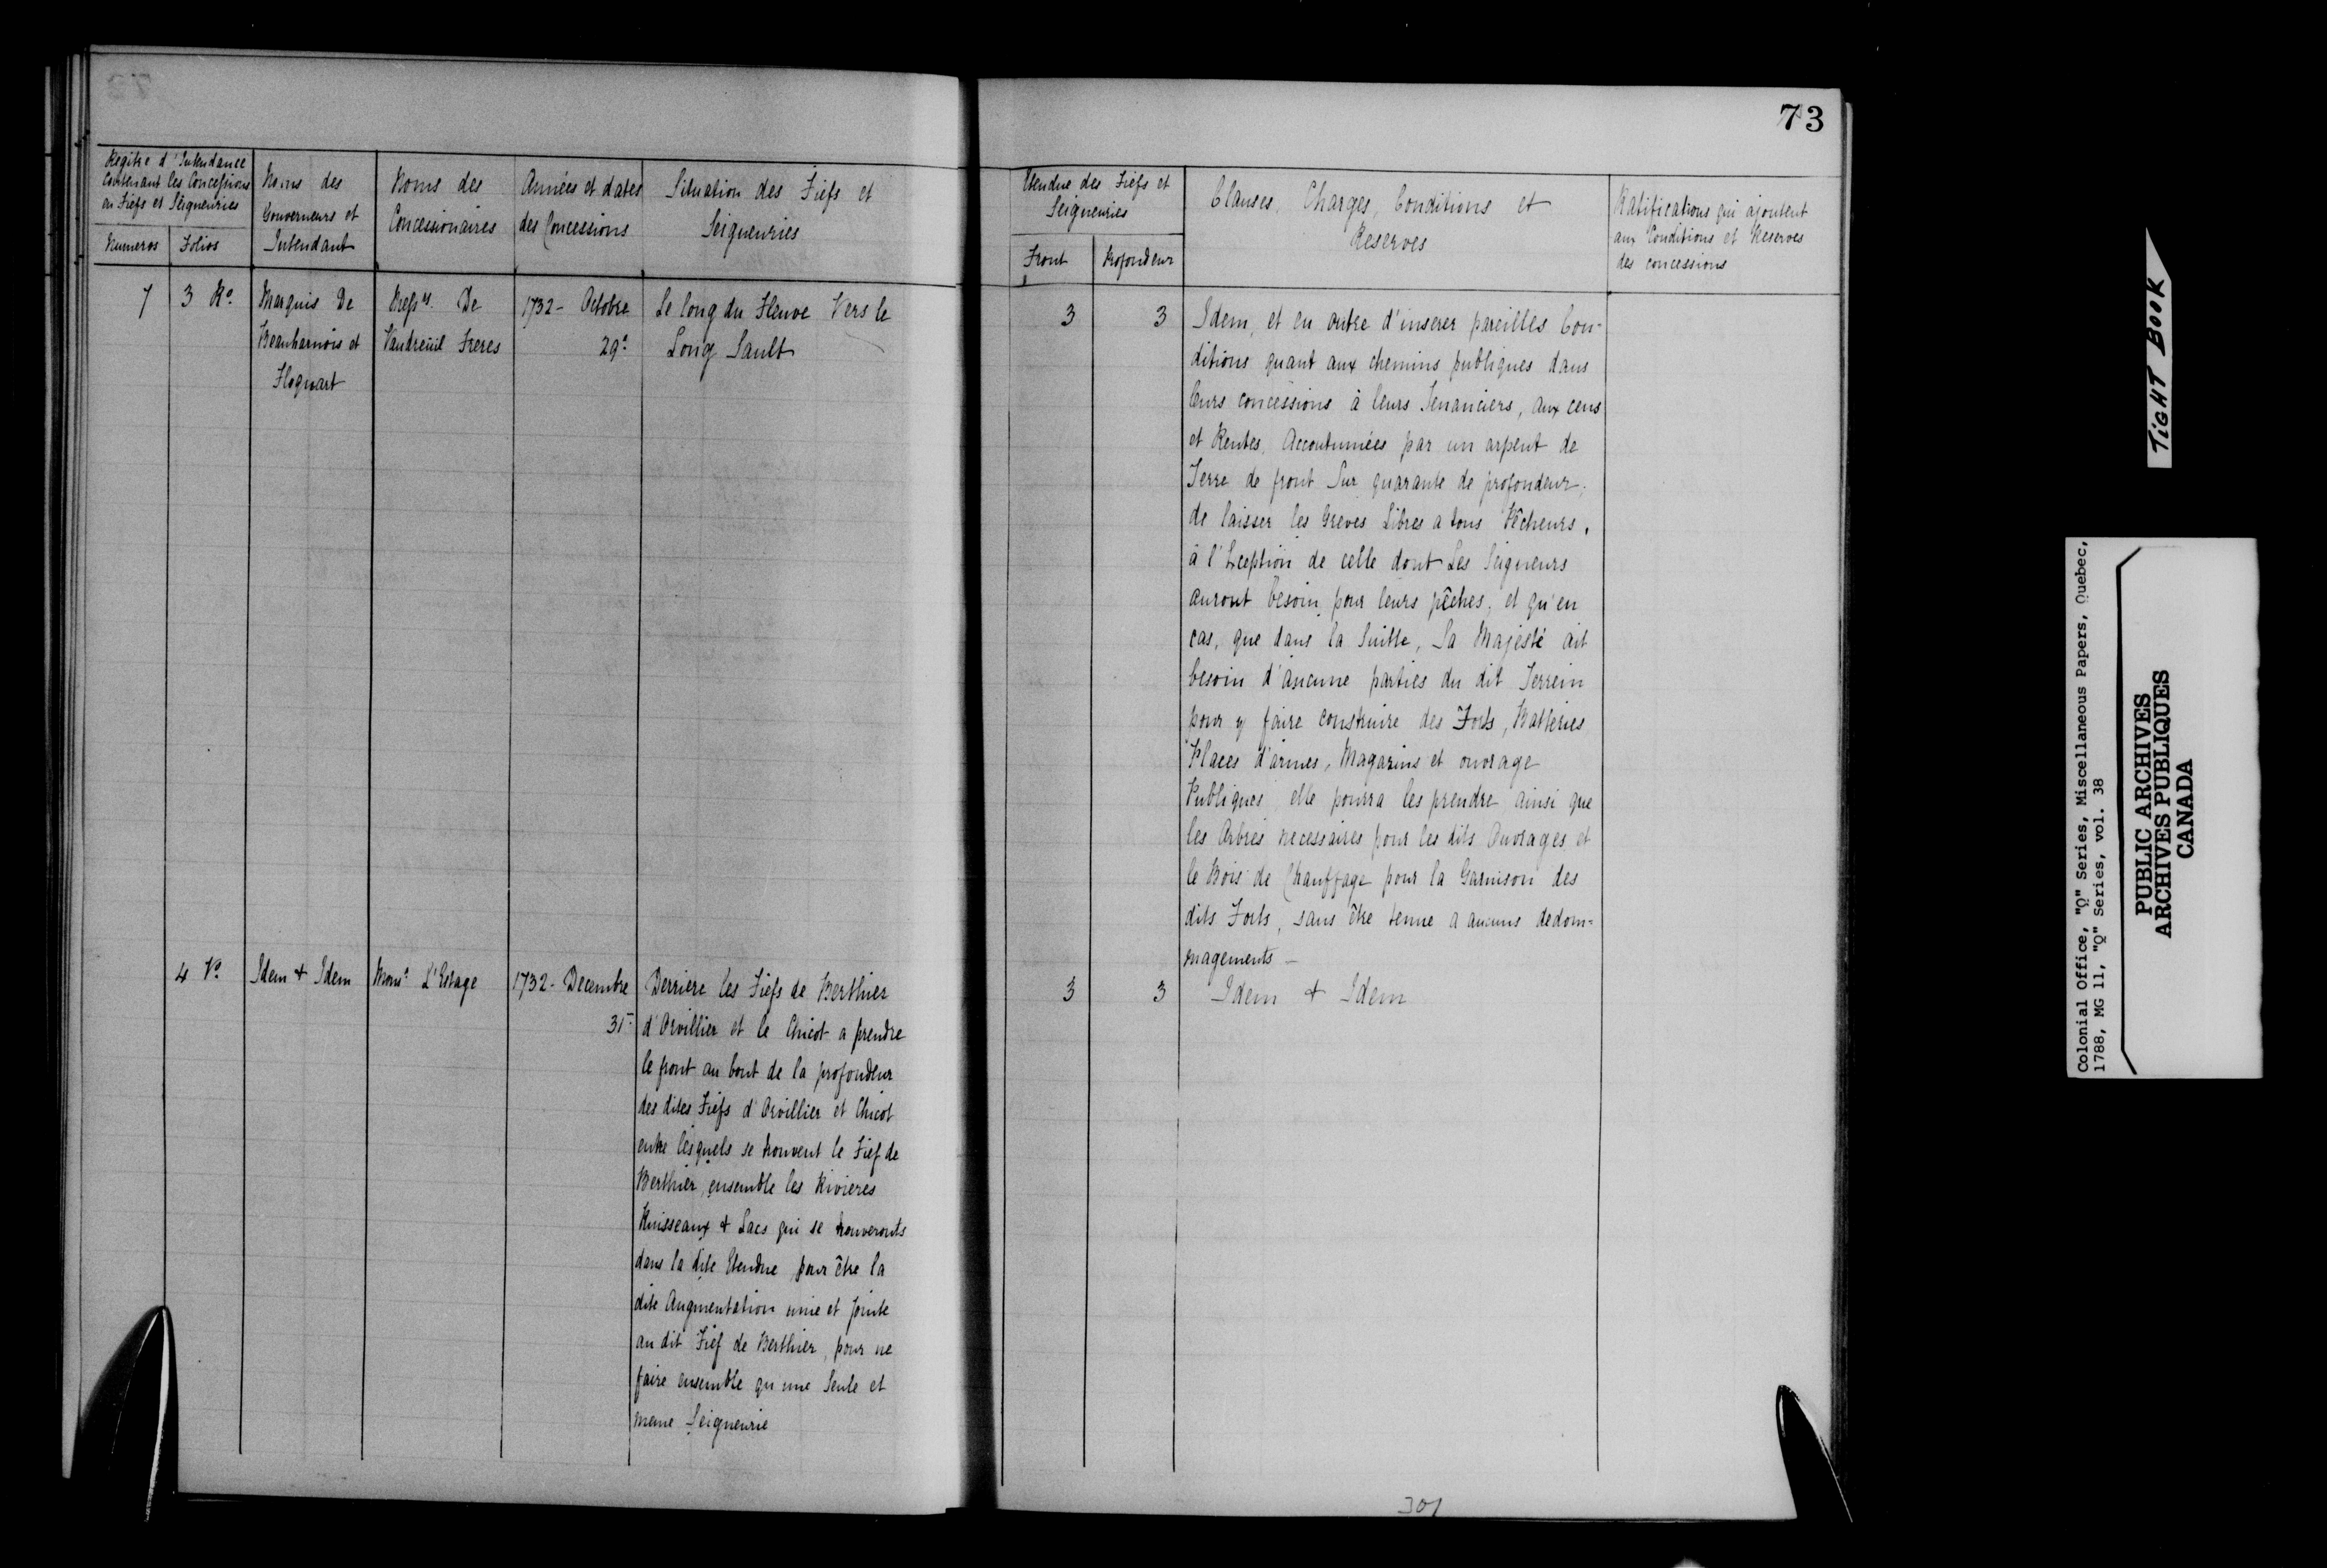 73
Regitre d'Intendance
Contenant les Concessions
en Fiefs et Seigneuries
Numeros
Folios
Noms des
Gouverneurs et
Intendant
Noms des
Concessionaires
Années et dates
des Concessions
Situation des Fiefs et
Seigneuries
Etendue des Fiefs et
Seigneuries
Front
Profondeur
Clauses, Charges, Conditions et
Reserves
Ratifications qui ajoutent
aux Conditions et Reserves
des concessions
7
3 Ro.
Marquis De
Beauharnois et
Hoquart
Messrs. De
Vaudreüil Freres
1732 - Octobre
29e
Le long du Fleuve Vers le
Long Sault
3
3
Idem, et en outre d'inserer pareilles Con-
ditions quant aux chemins publiques dans
leurs concessions à leurs Tenanciers, aux cens
et Rentes, Accoutumées par un arpent de
Terre de front Sur quarante de profondeur,
de laisser les Greves Libres a tous Pêcheurs,
à l'Exception de celle dont Les Seigneurs
auront besoin pour leurs pêches, et qu'en
cas, que dans la Suitte, Sa Majesté ait
besoin d'aucune parties du dit Terrein
pour y faire construire des Forts, Batteries
Places d'armes, Magazins et ouvrage
Publiques elle pourra les prendre ainsi que
les Arbres necessaires pour les dits Ouvrages et
le Bois de Chauffage pour la Garnison des
dits Forts, sans être tenue a aucuns dedom=
magements -
4 Vo.
Idem & Idem
Monsr. L'Estage
1732 - Decembre
31
Derriere les Fiefs de Berthier
d'Orvillier et le Chicot a prendre
le front au bout de la profondeur
des dites Fiefs d'Orvillier et Chicot
entre lesquels se trouvent le Fief de
Berthier, ensemble les Rivieres
Ruisseaux & Lacs qui se trouveronts
dans la dite Etendue pour être la
dite Augmentation unie et jointe
au dit Fief de Berthier, pour ne
faire ensemble qu une Seule et
meme Seigneurie
3
3
Idem & Idem
301
TIGHT BOOK
Colonial Office, "Q" Series, Miscellaneous Papers, Quebec,
1788, MG 11, "Q" Series, vol. 38
PUBLIC ARCHIVES
ARCHIVES PUBLIQUES
CANADA